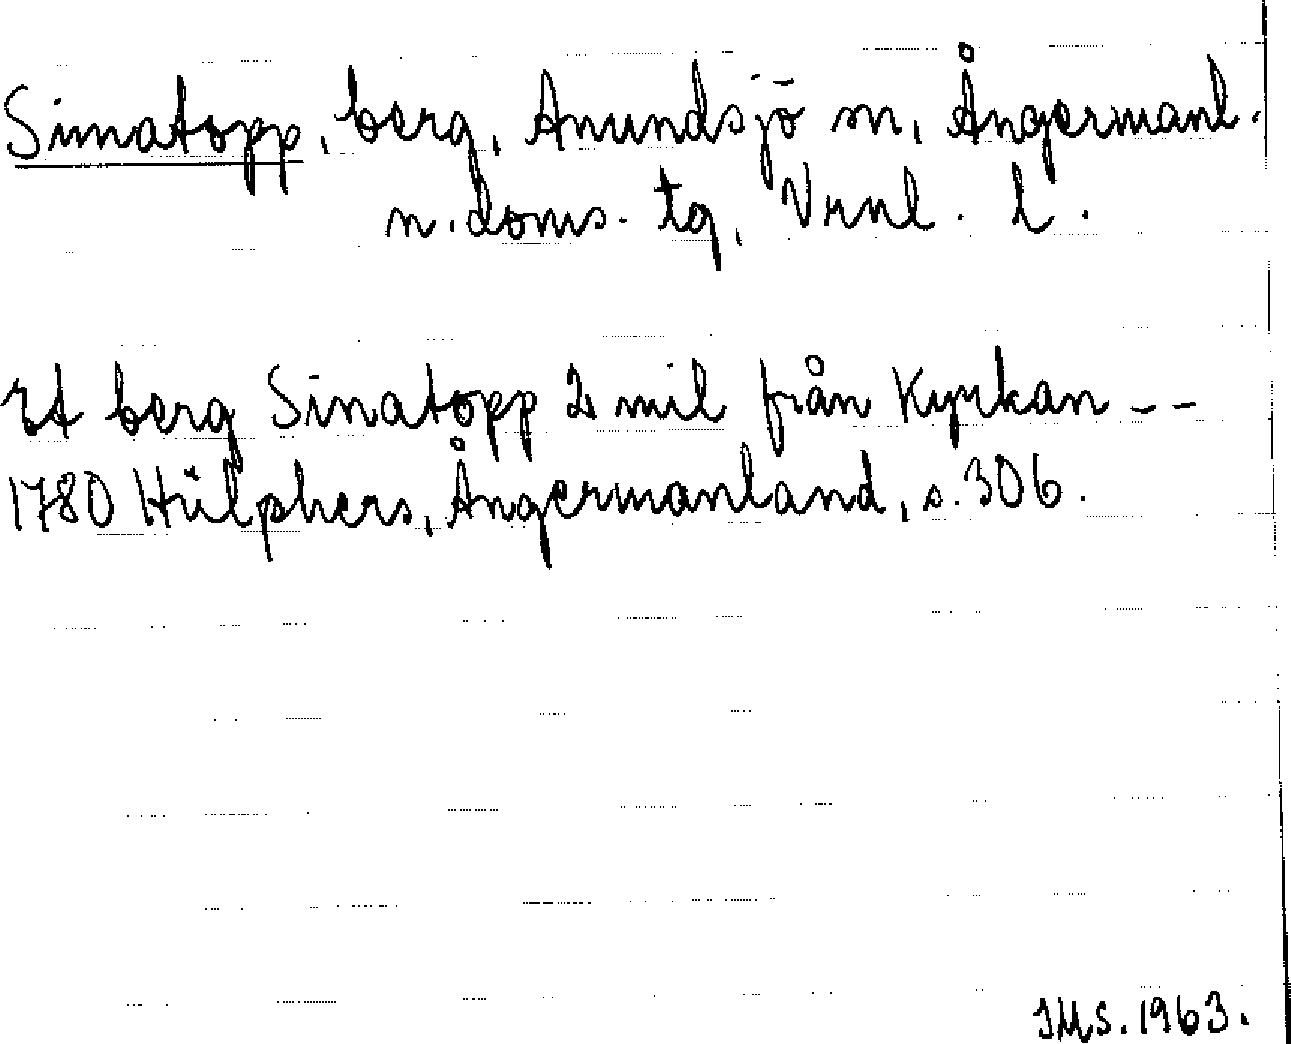 Sinatopp, berg, Anundsjö sn, Ångermanl.
n. doms. tg, Vrnl. l.
Et berg Sinatopp 2 mil från Kyrkan --
1780 Hülphers, Ångermanland, s. 306.
IMS. 1963.